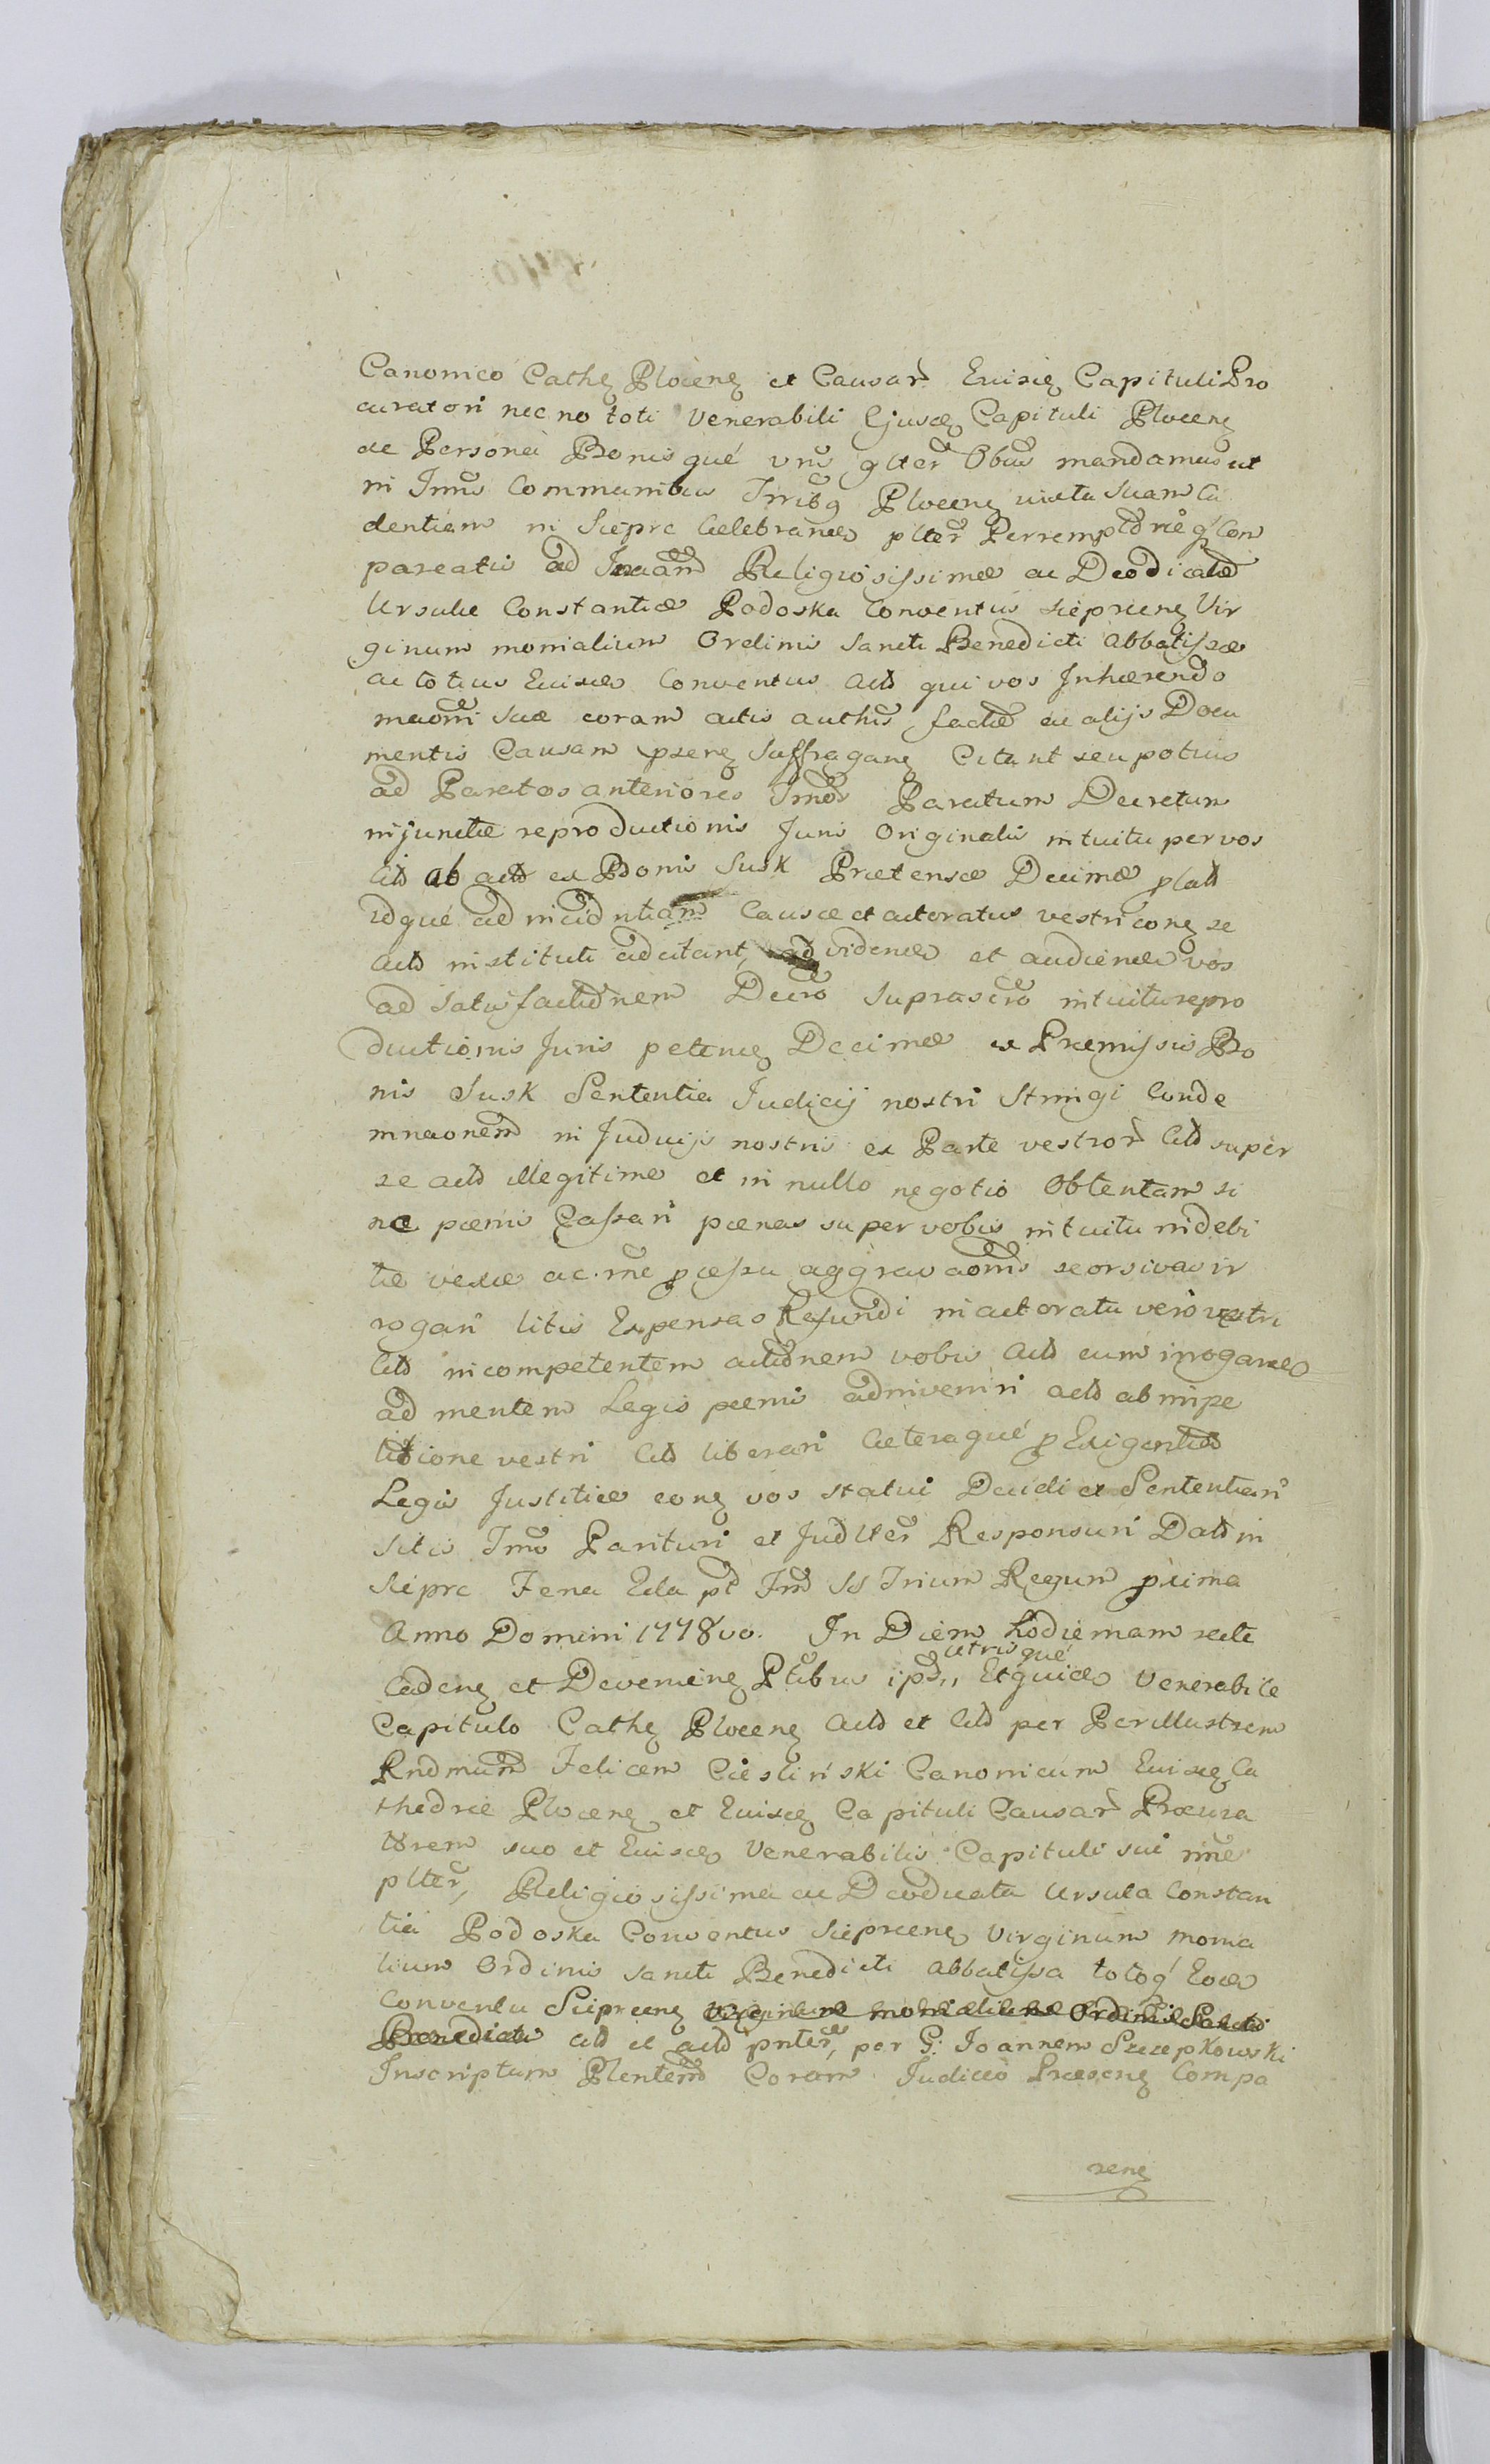 Canonico Cathę Plocenę et Causar̃ Eviscę Capituli Pro
curatori nec no toti Venerabili Ejusdę Capituli Plocenę
de Personã Bonisqué vris glter Obus mandamus ut
in Trmis Communibus Trribq Plocenę iuxta Suam Ca
dentiam in Siepre Celebrandis plter Perremptorieq́ Com
pareatis ad Religiosissimæ ac Deodicatæ
Ursulæ Constantiæ Podoska Conventus siepręcnę Vir
ginum monialium Ordinis Sancti Benedicti abbatissæ
ac totius Eviscæ Conventus Actd qui vos Inhærendo
mãoni suæ coram actis authis factæ ac alijs Docu
mentis Causam psenę Suffraganę Citant seu potius
ad Paratos anteriores Trmos Paratum Decretum
injunctæ reproductionis Juris Originalis intuitu per vos
Citd ab actd ex Bonis Susk Prætensæ Decimæ platd
idqué ad incidntiam Causæ et actoratus vestri conę se
Actd instituti adcitant, ad videndũ et audiendũ vos
ad Satisfactionem Decro Suprascro intuitu repro
ductionis Juris petendę Decimæ ex Præmissis Bo
nis Susk Sententia Judicij nostri Stringi Conde
mnaonem in Judicijs nostris ex Parte vestror̃ Citd super
se actd illegitime et in nullo negotio Obtentam si
ne pœnis Cassari pœnas super vobis intuitu indebi
tæ vexæ ac rne pcessu aggravaonis seorsivas ir
rogari litis Expensas Refundi in actoratu vero vestri
Citd incompetentem actionem vobis Actd eum irrogandũ
ad mentem Legis pœnis adinveniri actd ab impe
titione vestri Citd liberari Cæteraqué p Exigentia
Legis Justitiæ conę vos statui Decidi et Sententiari
sitis Trmo Parituri et Judlter Responsuri Datd in
Siepre Feria IIda pt Fm SS Trium Regum pxima
Anno Domini 1778vo. In Diem hodiernam recte
Cadenę et Devenienę Ptibus ipd,, utrisqué Etquidẽ Venerabile
Capitulo Cathę Plocenę Actd et Citd per Perillustrem
Rndmum Felicem Cieśliński Canonicum Eviscę Ca
thedræ Plocenę et Eviscę Capituli Causar̃ Procura
torem suo et Eviscę Venerabilis Capituli sui nne
plter, Religiosissima ac Deodicata Ursula Constan
tia Podoska Conventus Siepręcnę Virginum monia
lium Ordinis Sancti Benedicti abbatissa totoq́ Eodẽ
Conventu Siepręcnę Virginum monialium Ordinis Sancti
Benedicti Citd et actd pnter, per G. Joannem Szczepkowski
Inscriptum Plentem Coram Judicio Præsenę Compa
renę